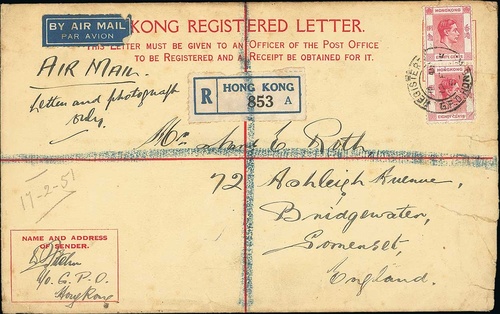 BY AIR MAIL
PAR AVION
KONG REGISTERED LETTER.
THIS LETTER MUST BE GIVEN TO AN OFFICER OF THE POST OFFICE
TO BE REGISTERED AND A RECEIPT BE OBTAINED FOR IT.
HONGKONG
HONGKONG
REGISTERED
G.P.O.
AIR MAIL.
Letter and photograph
only.
R HONG KONG
853 A
E Roth
72 Ashleigh Avenue,
Bridgewater,
Somerset,
England.
17-2-51
NAME AND ADDRESS
OF SENDER.
c/o G.P.O.
Hong Kong